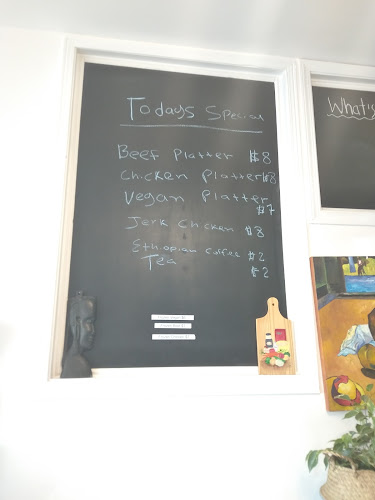 Todays Special
What's
Beef Platter $8
Chicken Platter $8
Vegan Platter
$7
Jerk Chicken $8
Ethiopian Coffee $2
Tea
$2